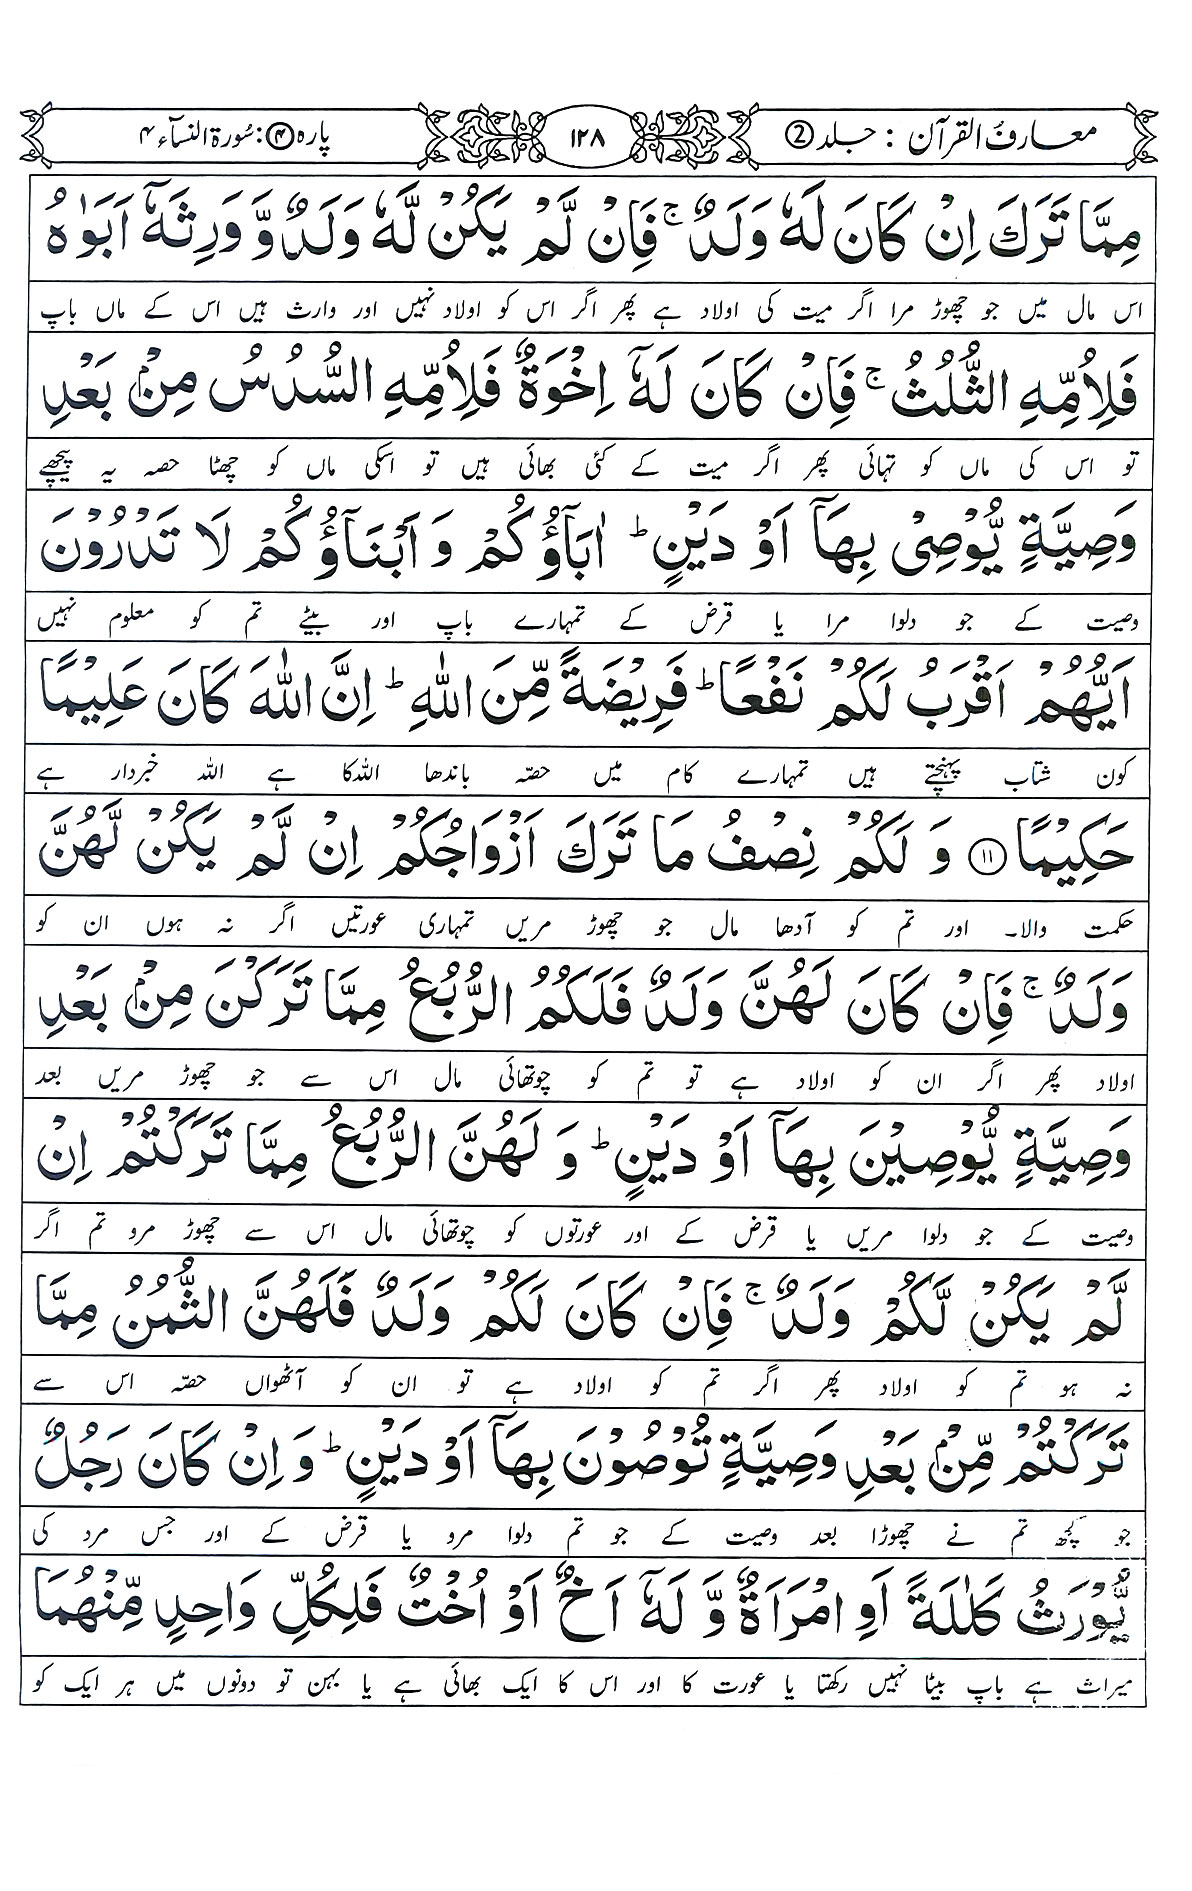 معارف القرآن : جلد 2
۱۲۸
پارہ ۴ : سُورۃ النسآء ۴
مِمَّا تَرَكَ اِنْ كَانَ لَهٗ وَلَدٌ ۚ فَاِنْ لَّمْ يَكُنْ لَّهٗ وَلَدٌ وَّ وَرِثَهٗٓ اَبَوٰهُ
اس مال میں جو چھوڑ مرا اگر میت کی اولاد ہے پھر اگر اس کو اولاد نہیں اور وارث ہیں اس کے ماں باپ
فَلِاُمِّهِ الثُّلُثُ ۚ فَاِنْ كَانَ لَهٗٓ اِخْوَةٌ فَلِاُمِّهِ السُّدُسُ مِنْۢ بَعْدِ
تو اس کی ماں کو تہائی پھر اگر میت کے کئی بھائی ہیں تو اسکی ماں کو چھٹا حصہ یہ پیچھے
وَصِيَّةٍ يُّوْصِيْ بِهَآ اَوْ دَيْنٍ ؕ اٰبَآؤُكُمْ وَ اَبْنَآؤُكُمْ لَا تَدْرُوْنَ
وصیت کے جو دلوا مرا یا قرض کے تمہارے باپ اور بیٹے تم کو معلوم نہیں
اَيُّهُمْ اَقْرَبُ لَكُمْ نَفْعًا ؕ فَرِيْضَةً مِّنَ اللّٰهِ ؕ اِنَّ اللّٰهَ كَانَ عَلِيْمًا
کون شتاب پہنچتے ہیں تمہارے کام میں حصّہ باندھا اللہ کا ہے اللہ خبردار ہے
حَكِيْمًا ۱۱ وَ لَكُمْ نِصْفُ مَا تَرَكَ اَزْوَاجُكُمْ اِنْ لَّمْ يَكُنْ لَّهُنَّ
حکمت والا۔ اور تم کو آدھا مال جو چھوڑ مریں تمہاری عورتیں اگر نہ ہوں ان کو
وَلَدٌ ۚ فَاِنْ كَانَ لَهُنَّ وَلَدٌ فَلَكُمُ الرُّبُعُ مِمَّا تَرَكْنَ مِنْۢ بَعْدِ
اولاد پھر اگر ان کو اولاد ہے تو تم کو چوتھائی مال اس سے جو چھوڑ مریں بعد
وَصِيَّةٍ يُّوْصِيْنَ بِهَآ اَوْ دَيْنٍ ؕ وَ لَهُنَّ الرُّبُعُ مِمَّا تَرَكْتُمْ اِنْ
وصیت کے جو دلوا مریں یا قرض کے اور عورتوں کو چوتھائی مال اس سے چھوڑ مرو تم اگر
لَّمْ يَكُنْ لَّكُمْ وَلَدٌ ۚ فَاِنْ كَانَ لَكُمْ وَلَدٌ فَلَهُنَّ الثُّمُنُ مِمَّا
نہ ہو تم کو اولاد پھر اگر تم کو اولاد ہے تو ان کو آٹھواں حصّہ اس سے
تَرَكْتُمْ مِّنْۢ بَعْدِ وَصِيَّةٍ تُوْصُوْنَ بِهَآ اَوْ دَيْنٍ ؕ وَ اِنْ كَانَ رَجُلٌ
جو کچھ تم نے چھوڑا بعد وصیت کے جو تم دلوا مرو یا قرض کے اور جس مرد کی
يُّوْرَثُ كَلٰلَةً اَوِ امْرَاَةٌ وَّ لَهٗٓ اَخٌ اَوْ اُخْتٌ فَلِكُلِّ وَاحِدٍ مِّنْهُمَا
میراث ہے باپ بیٹا نہیں رکھتا یا عورت کا اور اس کا ایک بھائی ہے یا بہن تو دونوں میں ہر ایک کو